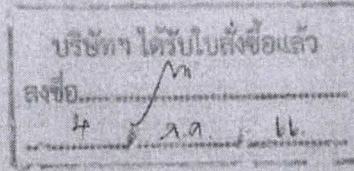 บริษัทฯ ได้รับใบสั่งซื้อแล้ว
ลงชื่อ
4 / ลค. / 66